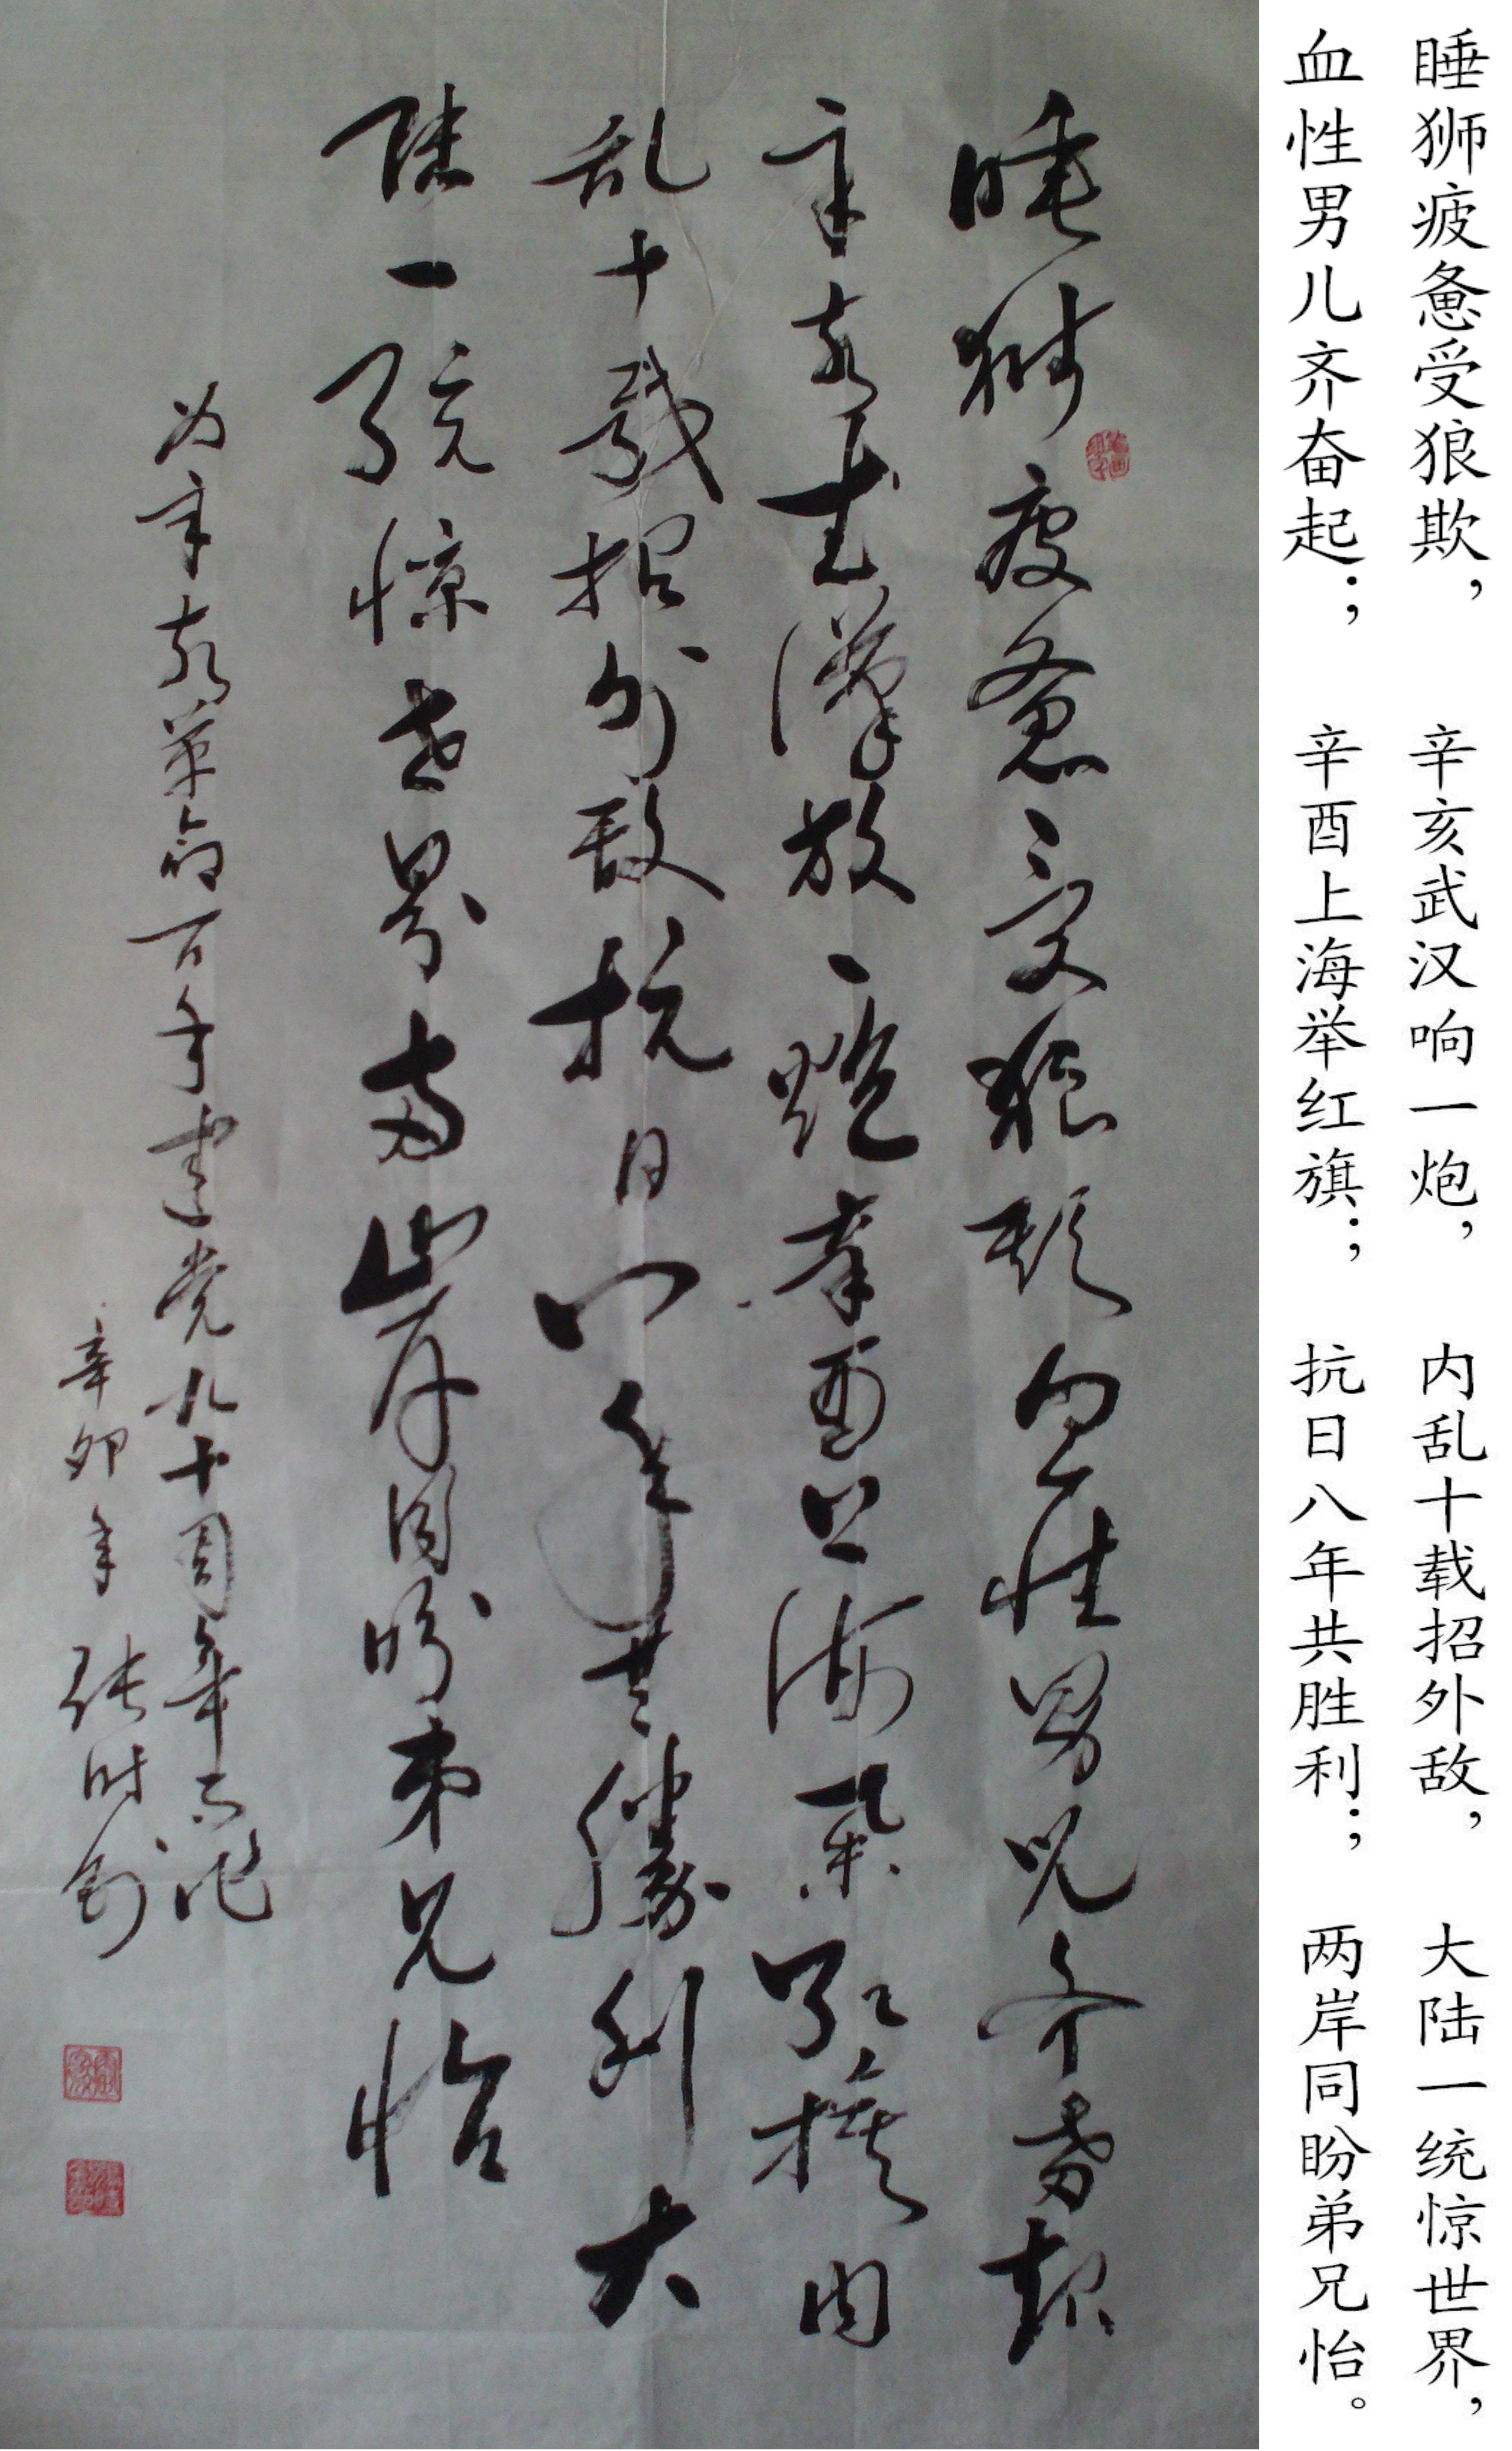 睡狮疲惫受狼欺， 辛亥武汉响一炮， 内乱十载招外敌， 大陆一统惊世界，
血性男儿齐奋起； 辛酉上海举红旗； 抗日八年共胜利； 两岸同盼弟兄怡。
睡狮疲惫受狼欺血性男儿齐奋起
辛亥武漢放一炮辛酉上海举红旗内
乱十载招外敌抗日八年共勝利大
陆一统惊世界两岸同盼弟兄怡
为辛亥革命百年建党九十周年而记
辛卯年 张时